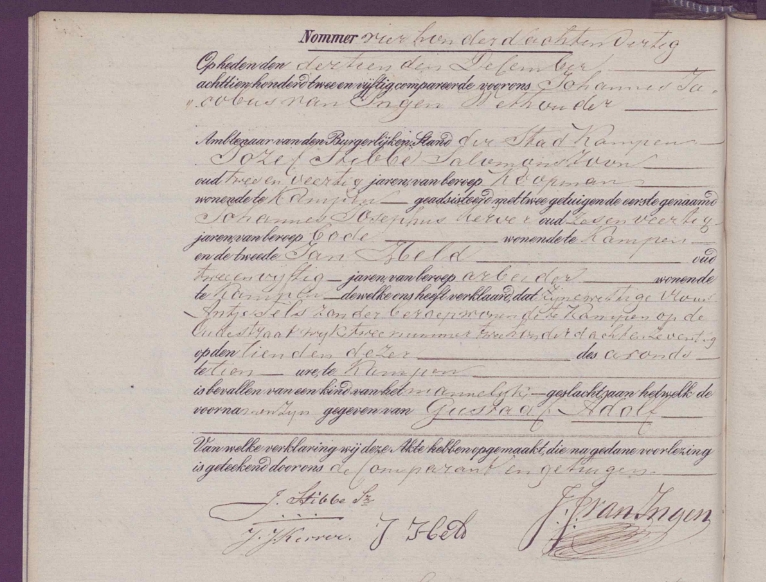 Nommer vier honderd achten veertig
Op heden den dertienden December
achttien honderd twee en vijftig compareerde voor ons Johannes Ja-
cobus van Ingen Wethouder
Ambtenaar van den Burgerlijken Stand der Stad Kampen
Jozef Stibbe Salomonszoon
oud twee en veertig jaren, van beroep Koopman
wonende te Kampen geadsisteerd met twee getuigen de eerste genaamd
Johannes Josephus Kerver oud zes en veertig
jaren, van beroep bode wonende te Kampen
en de tweede Jan Held oud
twee en vijftig jaren, van beroep arbeider wonende
te Kampen dewelke ons heeft verklaard, dat zijne wettige vrouw
zonder beroep wonende te Kampen op de
Oudestraat wijk twee nummer twee honderd acht en zeventig
op den tienden dezer des avonds
te tien ure, te Kampen
is bevallen van een kind van het mannelijk geslacht, aan hetwelk de
voornamen zyn gegeven van Gustaaf Adolf
Van welke verklaring wij deze Akte hebben opgemaakt, die na gedane voorlezing
is geteekend door ons de Comparant en getuigen
J. Stibbe Sz
J. J. Kerver J Held J. J. van Ingen